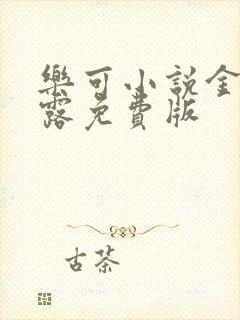 樂可小說金
露免費版
古茶